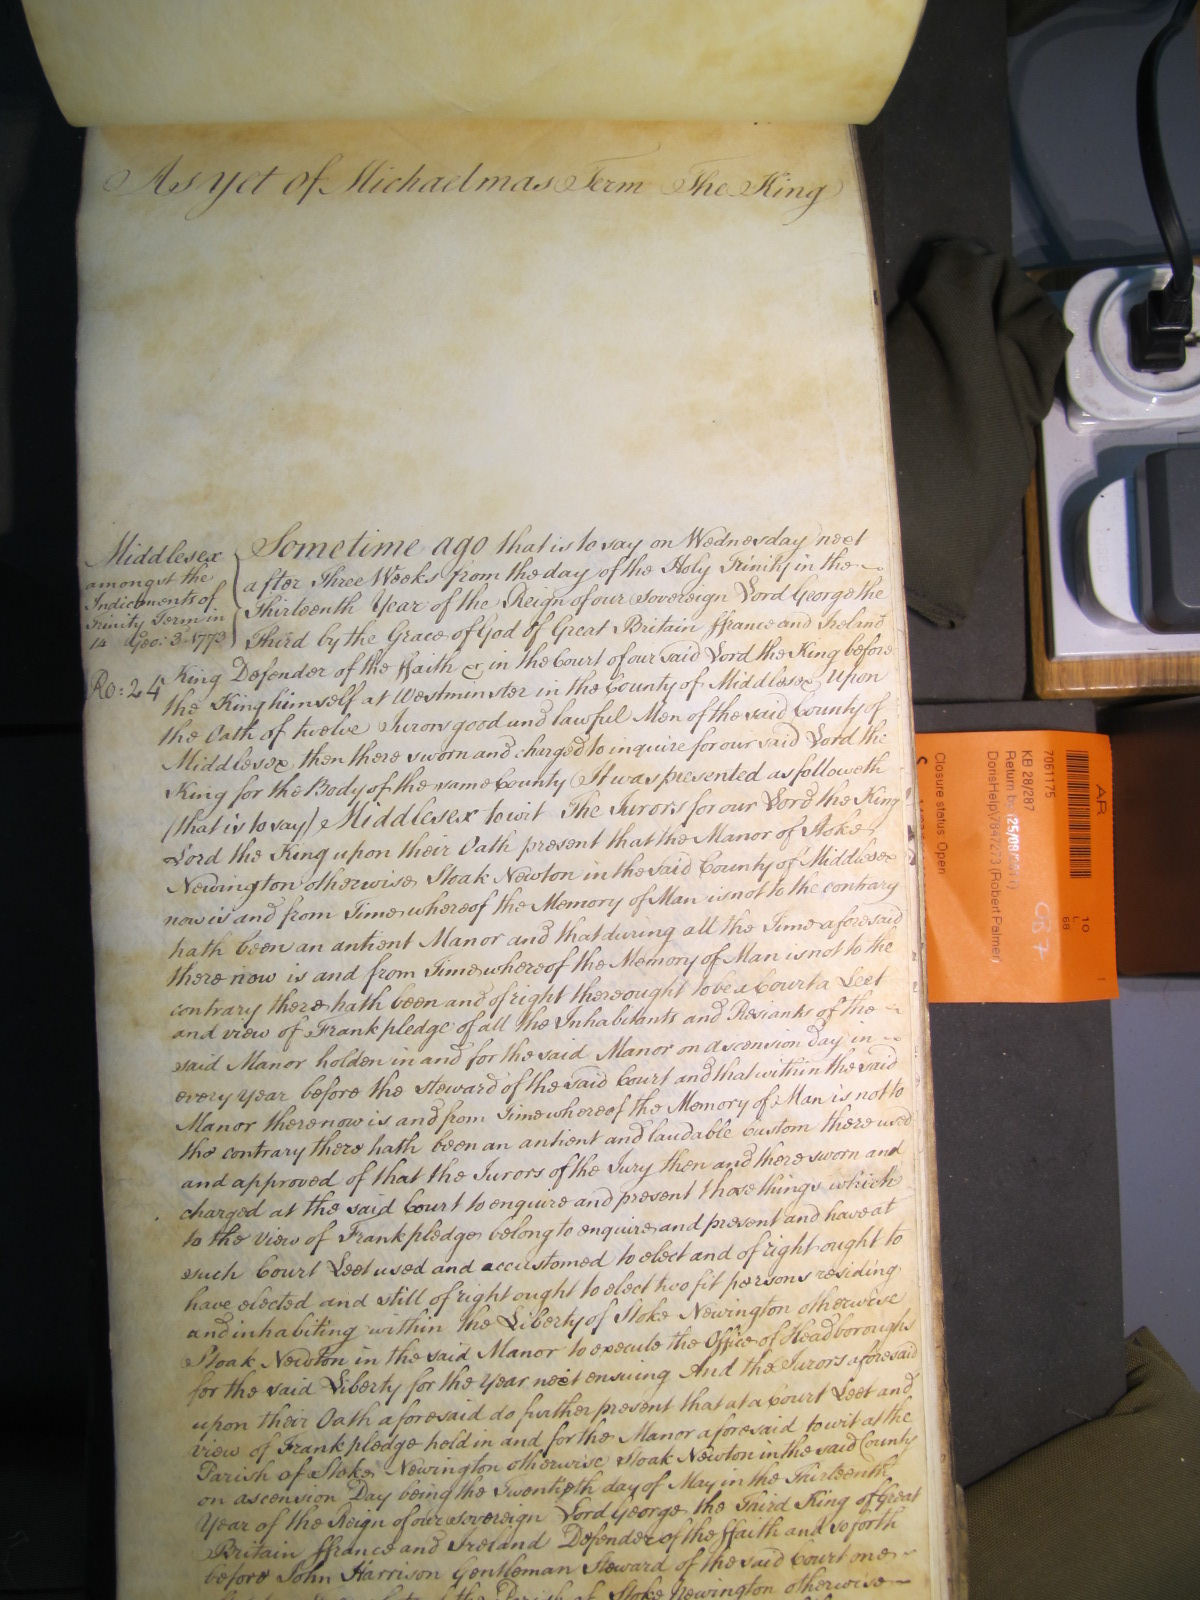 As yet of Michaelmas Term The King
Middlesex
amongst the
Indictments of
Trinity Term in
14 Geo: 3. 1773
Ro: 24
Sometime ago that is to say on Wednesday next
after Three Weeks from the day of the Holy Trinity in the
Thirteenth Year of the Reign of our Sovereign Lord George the
Third by the Grace of God of Great Britain ffrance and Ireland
King Defender of the ffaith &c in the Court of our said Lord the King before
the King himself at Westminster in the County of Middlesex Upon
the Oath of twelve Jurors good and lawful Men of the said County of
Middlesex then there sworn and charged to inquire for our said Lord the
King for the Body of the same County It was presented as followeth
(that is to say) Middlesex to wit The Jurors for our Lord the King
Lord the King upon their Oath present that the Manor of Stoke
Newington otherwise Stoak Newton in the said County of Middlesex
now is and from Time whereof the Memory of Man is not to the contrary
hath been an antient Manor and that during all the Time aforesaid
there now is and from Time whereof the Memory of Man is not to the
contrary there hath been and of right there ought to be a Court a Leet
and view of Frankpledge of all the Inhabitants and Resiants of the
said Manor holden in and for the said Manor on ascension day in
every year before the steward of the said Court and that within the said
Manor there now is and from Time whereof the Memory of Man is not to
the contrary there hath been an antient and laudable custom there used
and approved of that the Jurors of the Jury then and there sworn and
charged at the said Court to enquire and present those things which
to the view of Frankpledge belong to enquire and present and have at
such Court Leet used and accustomed to elect and of right ought to
have elected and still of right ought to elect two fit persons residing
and inhabiting within the Liberty of Stoke Newington otherwise
Stoak Newton in the said Manor to execute the Office of Headboroughs
for the said Liberty for the Year next ensuing And the Jurors aforesaid
upon their Oath aforesaid do further present that at a Court Leet and
view of Frankpledge held in and for the Manor aforesaid to wit at the
Parish of Stoke Newington otherwise Stoak Newton in the said County
on ascension Day being the Twentieth day of May in the Thirteenth
Year of the Reign of our sovereign Lord George the Third King of Great
Britain ffrance and Ireland Defender of the ffaith and so forth
before John Harrison Gentleman Steward of the said Court one
of the Parish of Stoke Newington otherwise
AR
7061175
KB 28/287
Return by
(Robert Palmer)
Closure status: Open